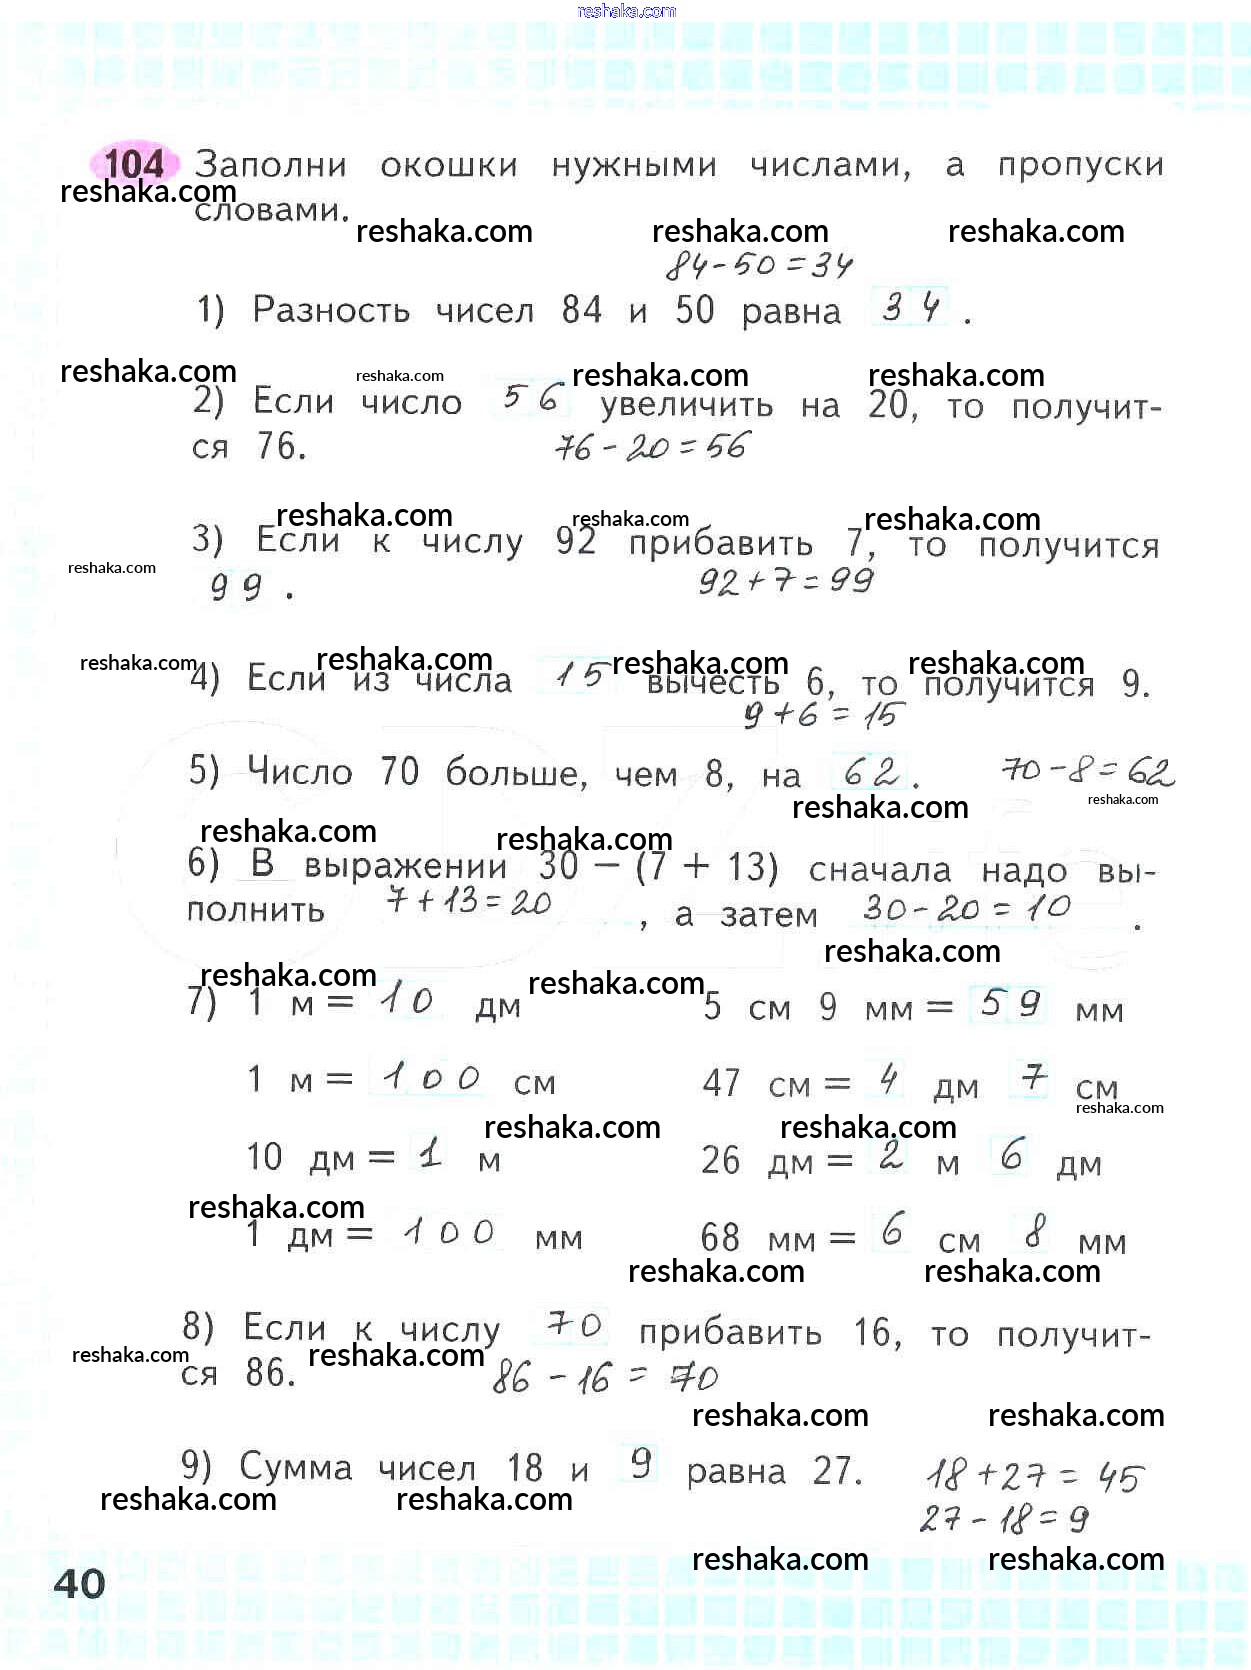 reshaka.com
104 Заполни окошки нужными числами, а пропуски
reshaka.com
словами.
reshaka.com reshaka.com reshaka.com
84-50=34
1) Разность чисел 84 и 50 равна 34.
reshaka.com reshaka.com reshaka.com reshaka.com
2) Если число 56 увеличить на 20, то получит-
ся 76. 76-20=56
reshaka.com reshaka.com reshaka.com
3) Если к числу 92 прибавить 7, то получится
reshaka.com
99. 92+7=99
reshaka.com reshaka.com reshaka.com reshaka.com
4) Если из числа 15 вычесть 6, то получится 9.
9+6=15
5) Число 70 больше, чем 8, на 62. 70-8=62
reshaka.com reshaka.com
reshaka.com reshaka.com
6) В выражении 30 − (7 + 13) сначала надо вы-
полнить 7+13=20, а затем 30-20=10.
reshaka.com
reshaka.com reshaka.com
7) 1 м = 10 дм 5 см 9 мм = 59 мм
1 м = 100 см 47 см = 4 дм 7 см
reshaka.com
reshaka.com reshaka.com
10 дм = 1 м 26 дм = 2 м 6 дм
reshaka.com
1 дм = 100 мм 68 мм = 6 см 8 мм
reshaka.com reshaka.com
8) Если к числу 70 прибавить 16, то получит-
reshaka.com reshaka.com
ся 86. 86-16=70
reshaka.com reshaka.com
9) Сумма чисел 18 и 9 равна 27. 18+27=45
reshaka.com reshaka.com
27-18=9
reshaka.com reshaka.com
40